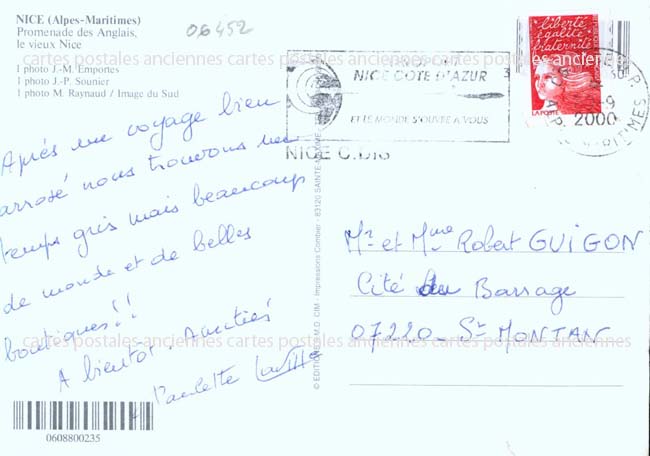 NICE (Alpes-Maritimes)
Promenade des Anglais,
le vieux Nice
1 photo J.-M. Emportes
1 photo J.-P. Sounier
1 photo M. Raynaud / Image du Sud
06452
cartes postales anciennes cartes postales anciennes cartes postales anciennes
Après un voyage bien
arrosé nous trouvons un
temps gris mais beaucoup
de monde et de belles
boutiques!!
A bientôt. Amitiés
Paulette
0608800235
NICE COTE D'AZUR
ET LE MONDE S'OUVRE A VOUS
NICE C.DIS
liberté
égalité
fraternité
LA POSTE
-9
2000
MARITIMES
Mr et Mme Robert GUIGON
Cité du Barrage
07220 - St MONTAN
cartes postales anciennes cartes postales anciennes cartes postales anciennes